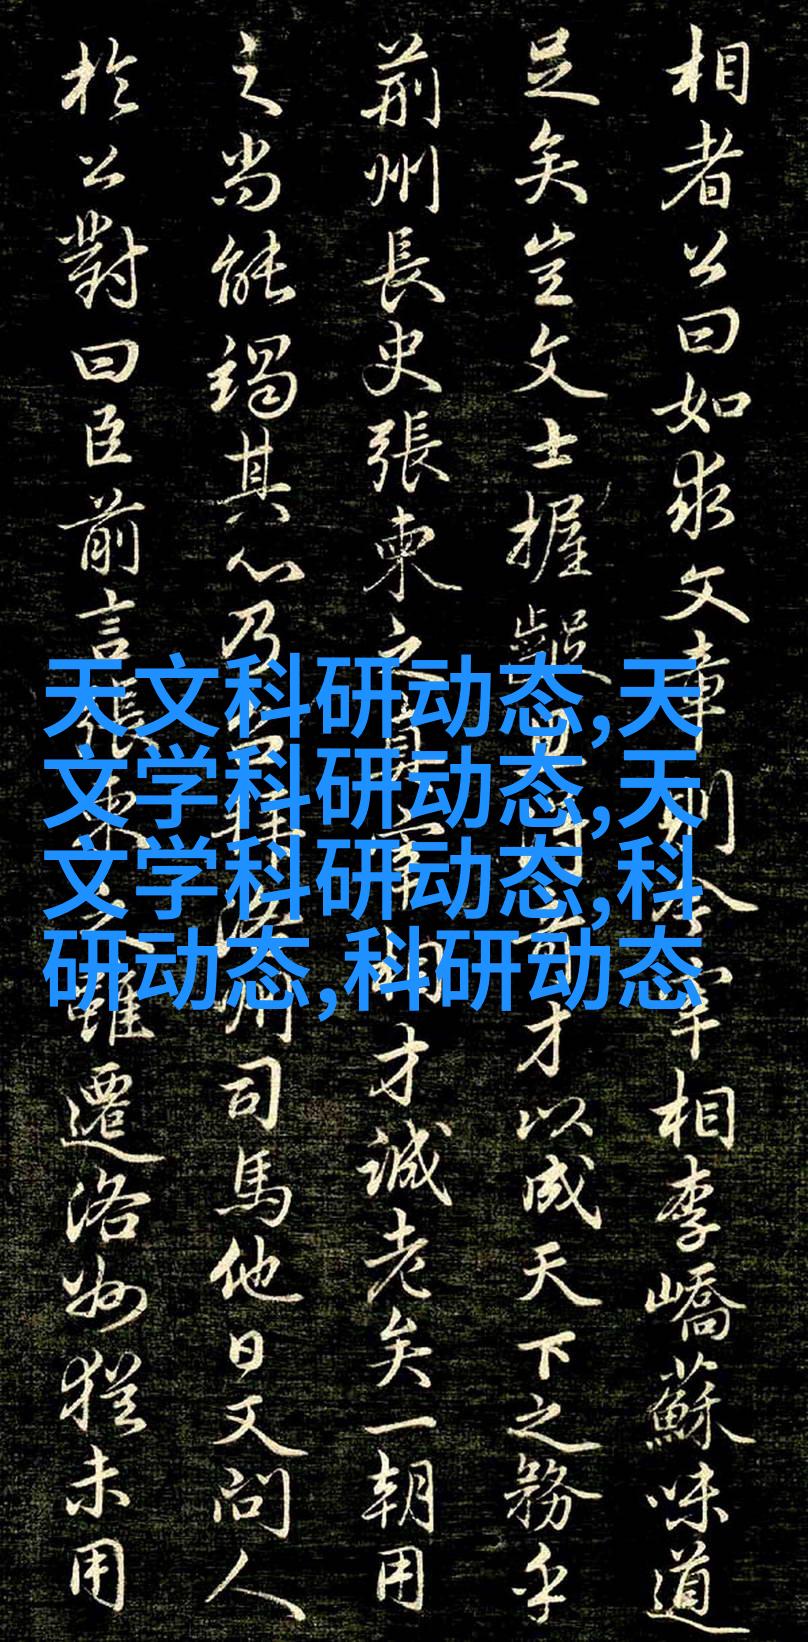 相者公曰如求文章則今宰相李嶠蘇味道
足矣豈文士握齪思得奇才以成天下之務乎
荆州長史張柬之真宰相才誠老矣一朝用
之尚能竭其心乃召拜洛州司馬他日又問人
於公對曰臣前言張柬之雖遷洛州猶未用
天文科研动态,天
文学科研动态,天
文学科研动态,科
研动态,科研动态